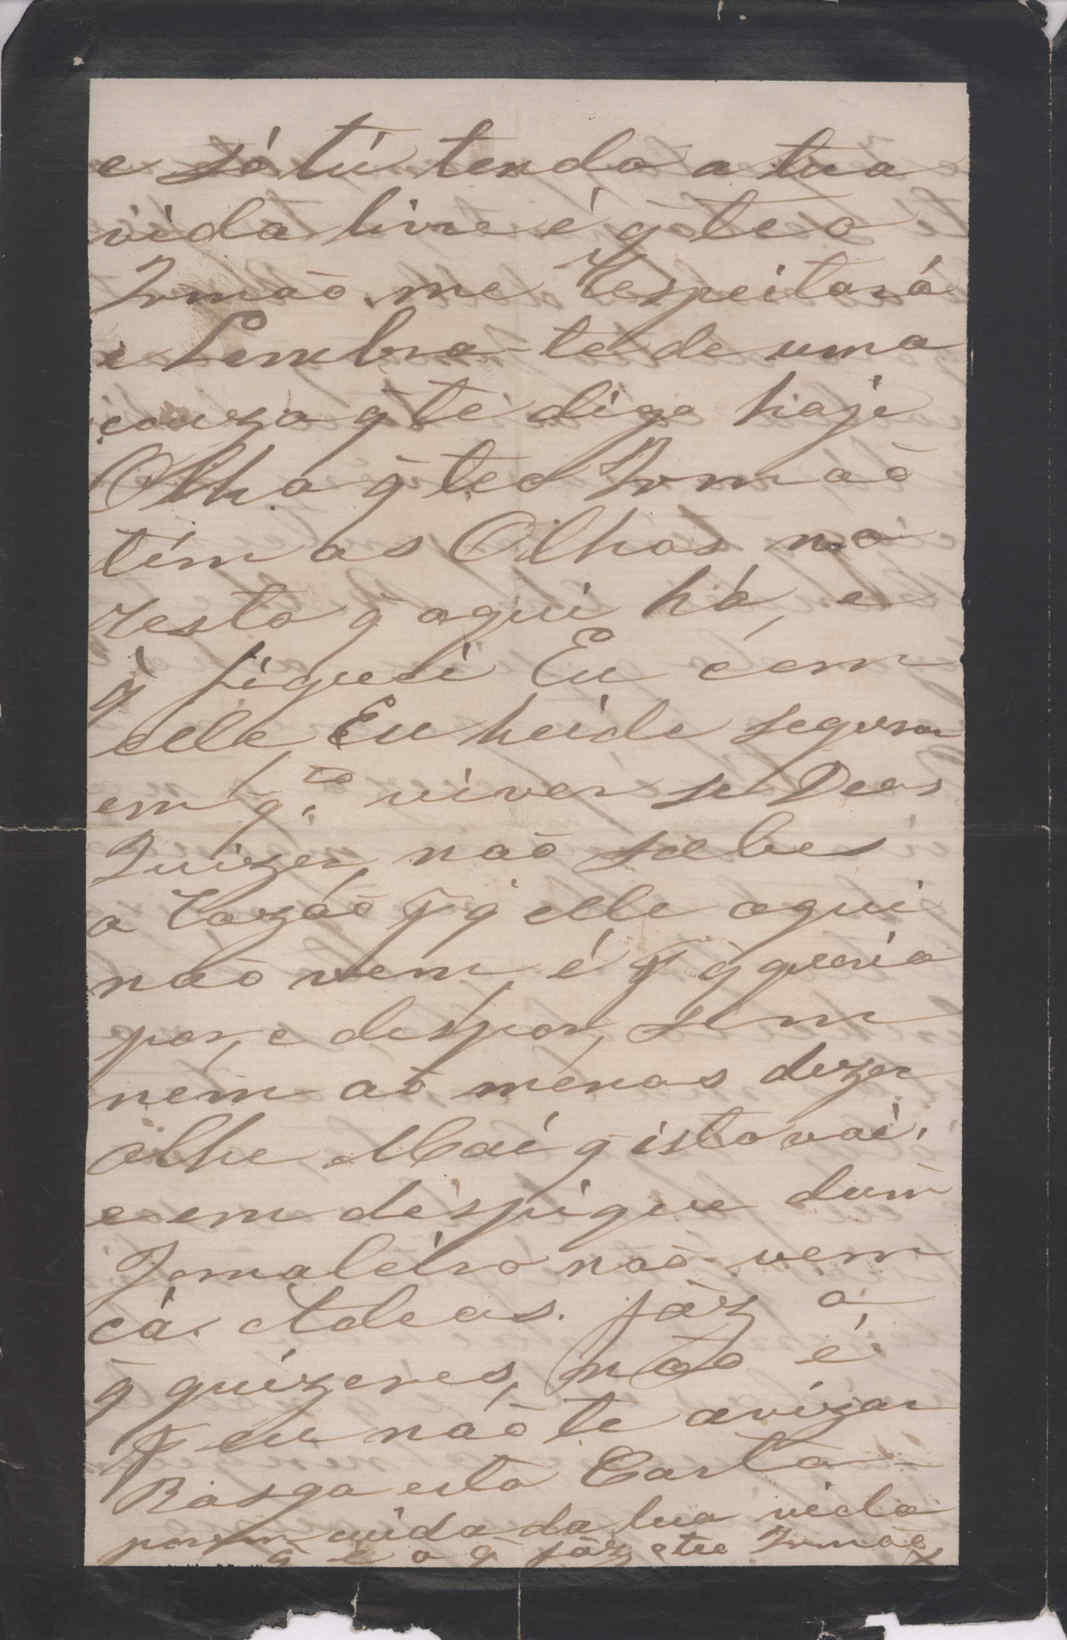 e só tú tendo a tua
vida livre é q̃ teo
Irmaõ me respeitará
e Lembra-te de uma
couza q̃ te digo hoje
Olha q̃ teo Irmaõ
tém os Olhos no
resto q̃ aqui há, e
q̃ fiquei Eu cem
elle, Eu heide segurar
em q.to viver se Deos
Quizer, naõ sabes
a razáo p q̃ elle aqui
naõ vem é p q̃ queria
por, e dispor, sem
nem aõ menos dizer
olhe Mai q̃ isto vai,
e em déspique dum
Jornaleiro naõ vem
cá. Adeos. fáz o
q̃ quizeres, não é
p eu náõ te avizar
Rasga esta Carta
porem cuida da tua vida
q̃ é o q̃ fáz o teu Irmaõ